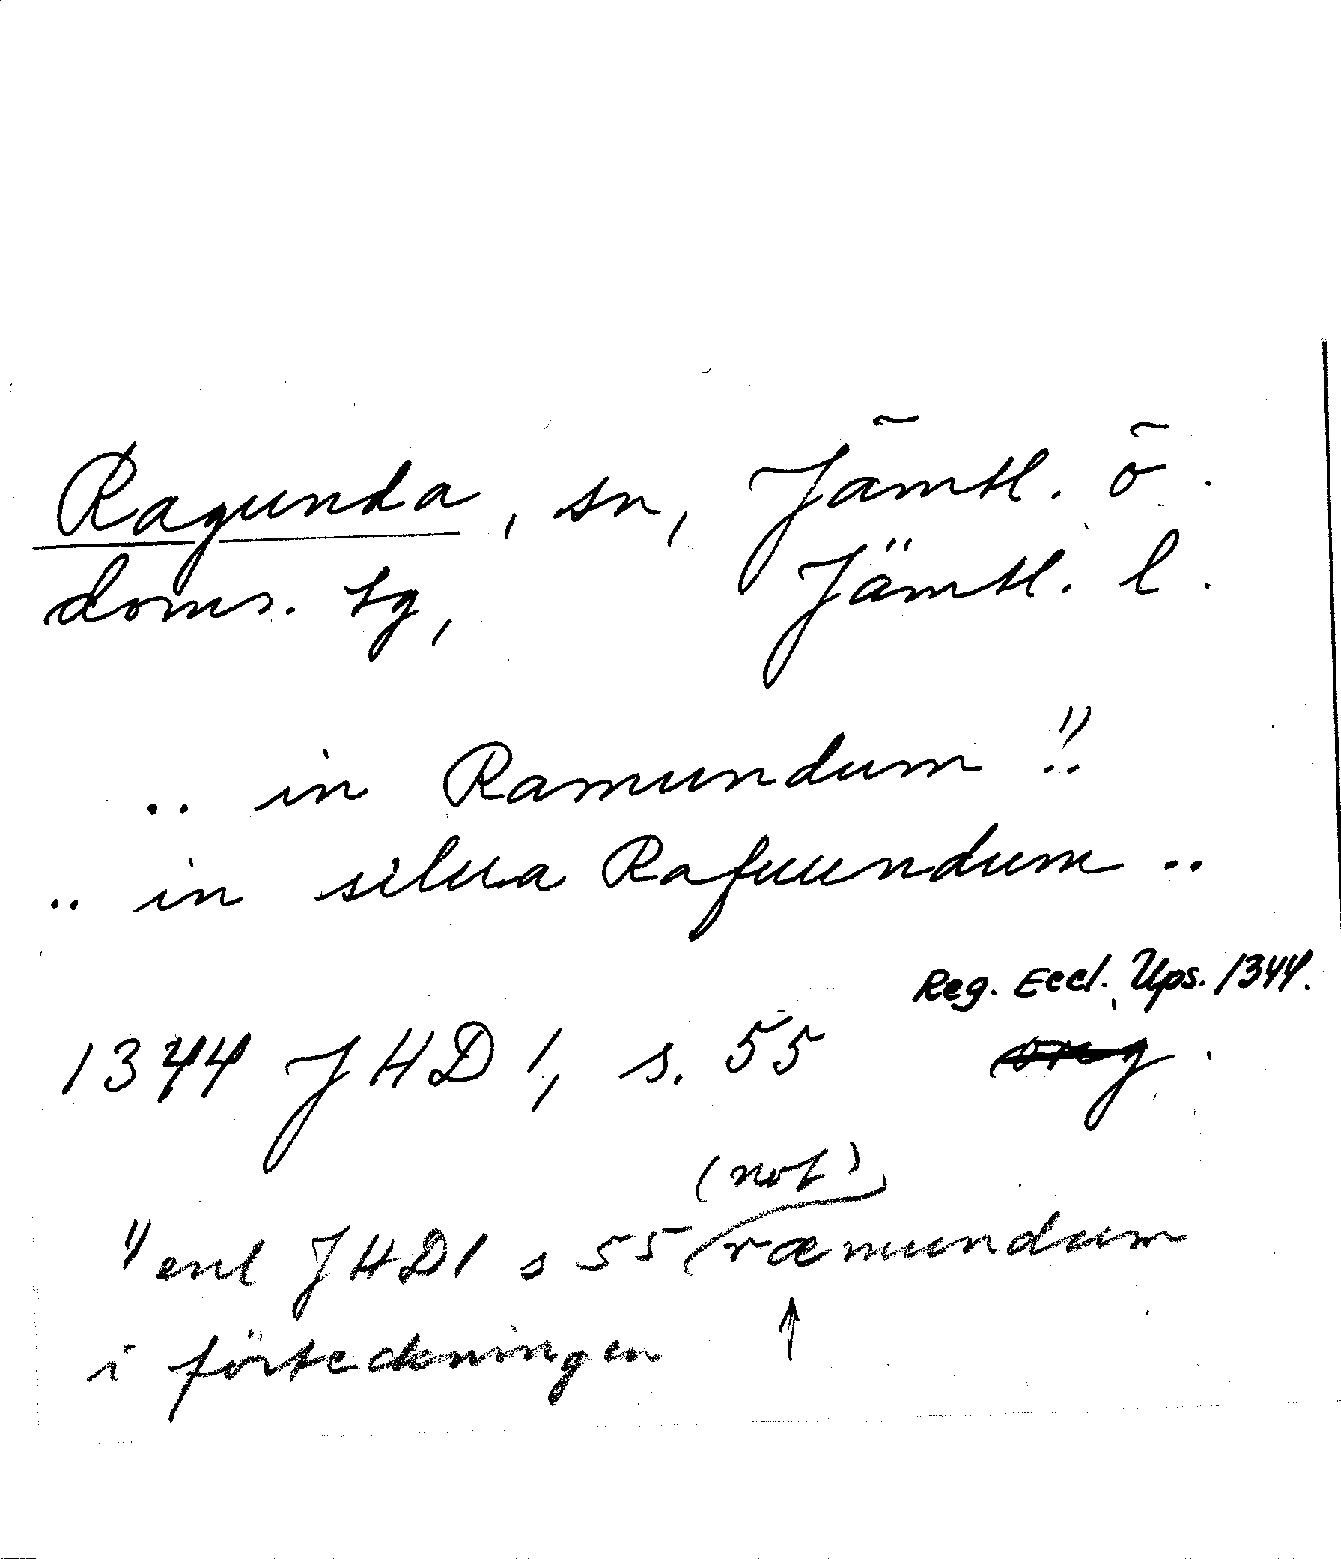 Ragunda, sn, Jämtl. ö.
doms. tg, Jämtl. l.
.. in Ramundum 1) ..
.. in silua Rafuundum ..
Reg. Eccl. Ups. 1344.
1344 JHD 1, s. 55
(not)
1) enl JHD1 s 55 ræmundum
i förteckningen ↑